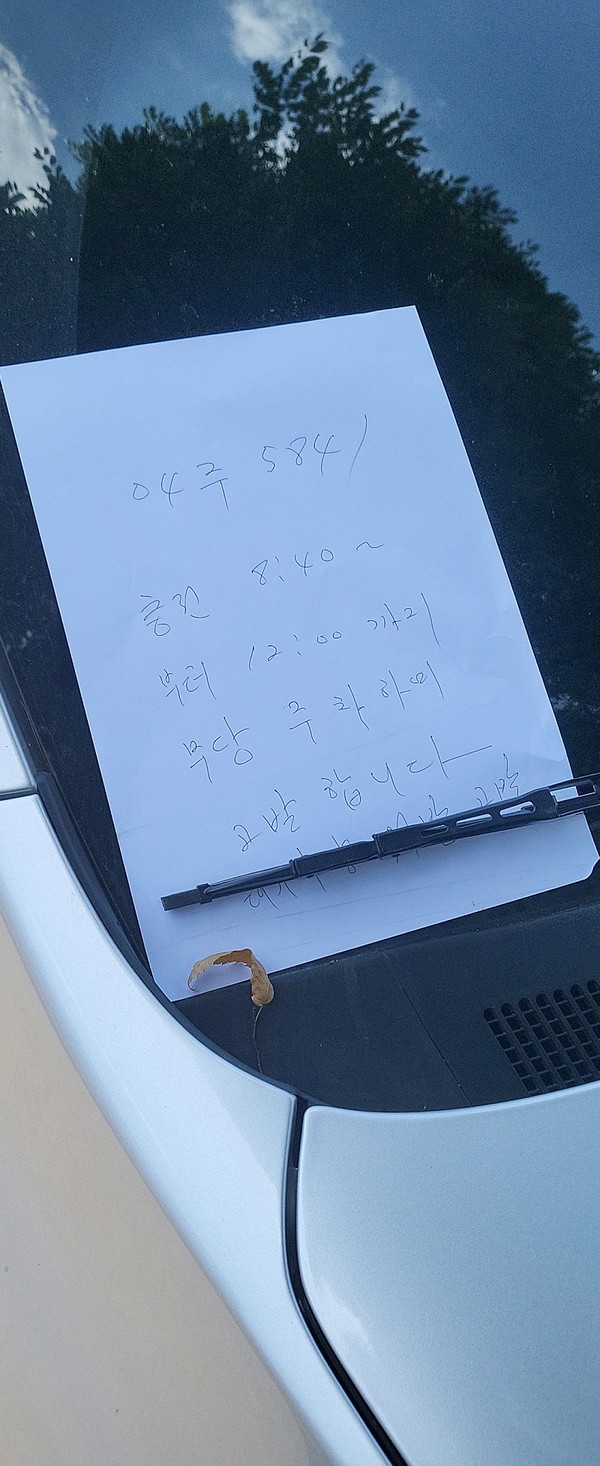 04주 5841
충전 8:40~
부터 12:00 까지
부당 주차하여
고발 합니다